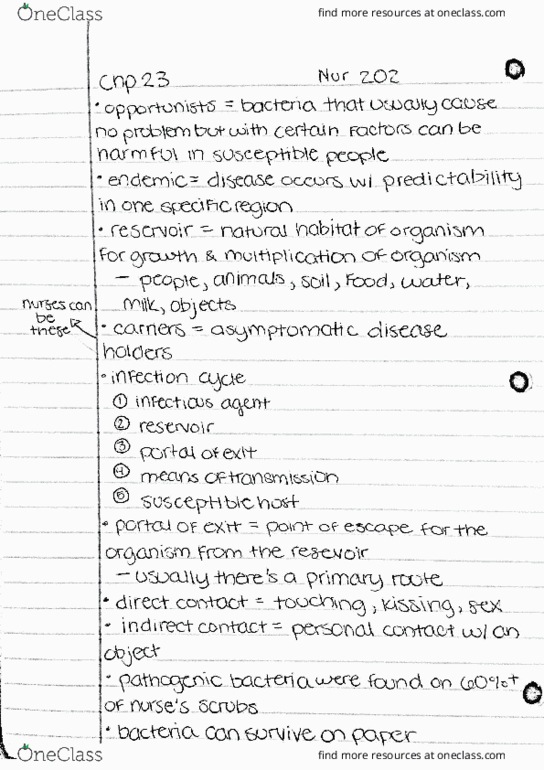 OneClass find more resources at oneclass.com
Chp 23 Nur 202
• opportunists = bacteria that usually cause
no problem but with certain factors can be
harmful in susceptible people
• endemic = disease occurs w/ predictability
in one specific region
• reservoir = natural habitat of organism
for growth & multiplication of organism
– people, animals, soil, food, water,
milk, objects
nurses can
be
these
• carriers = asymptomatic disease
holders
• infection cycle
① infectious agent
② reservoir
③ portal of exit
④ means of transmission
⑤ susceptible host
• portal of exit = point of escape for the
organism from the resevoir
– usually there's a primary route
• direct contact = touching, kissing, sex
• indirect contact = personal contact w/ an
object
• pathogenic bacteria were found on 60%+
of nurse's scrubs
• bacteria can survive on paper
OneClass find more resources at oneclass.com